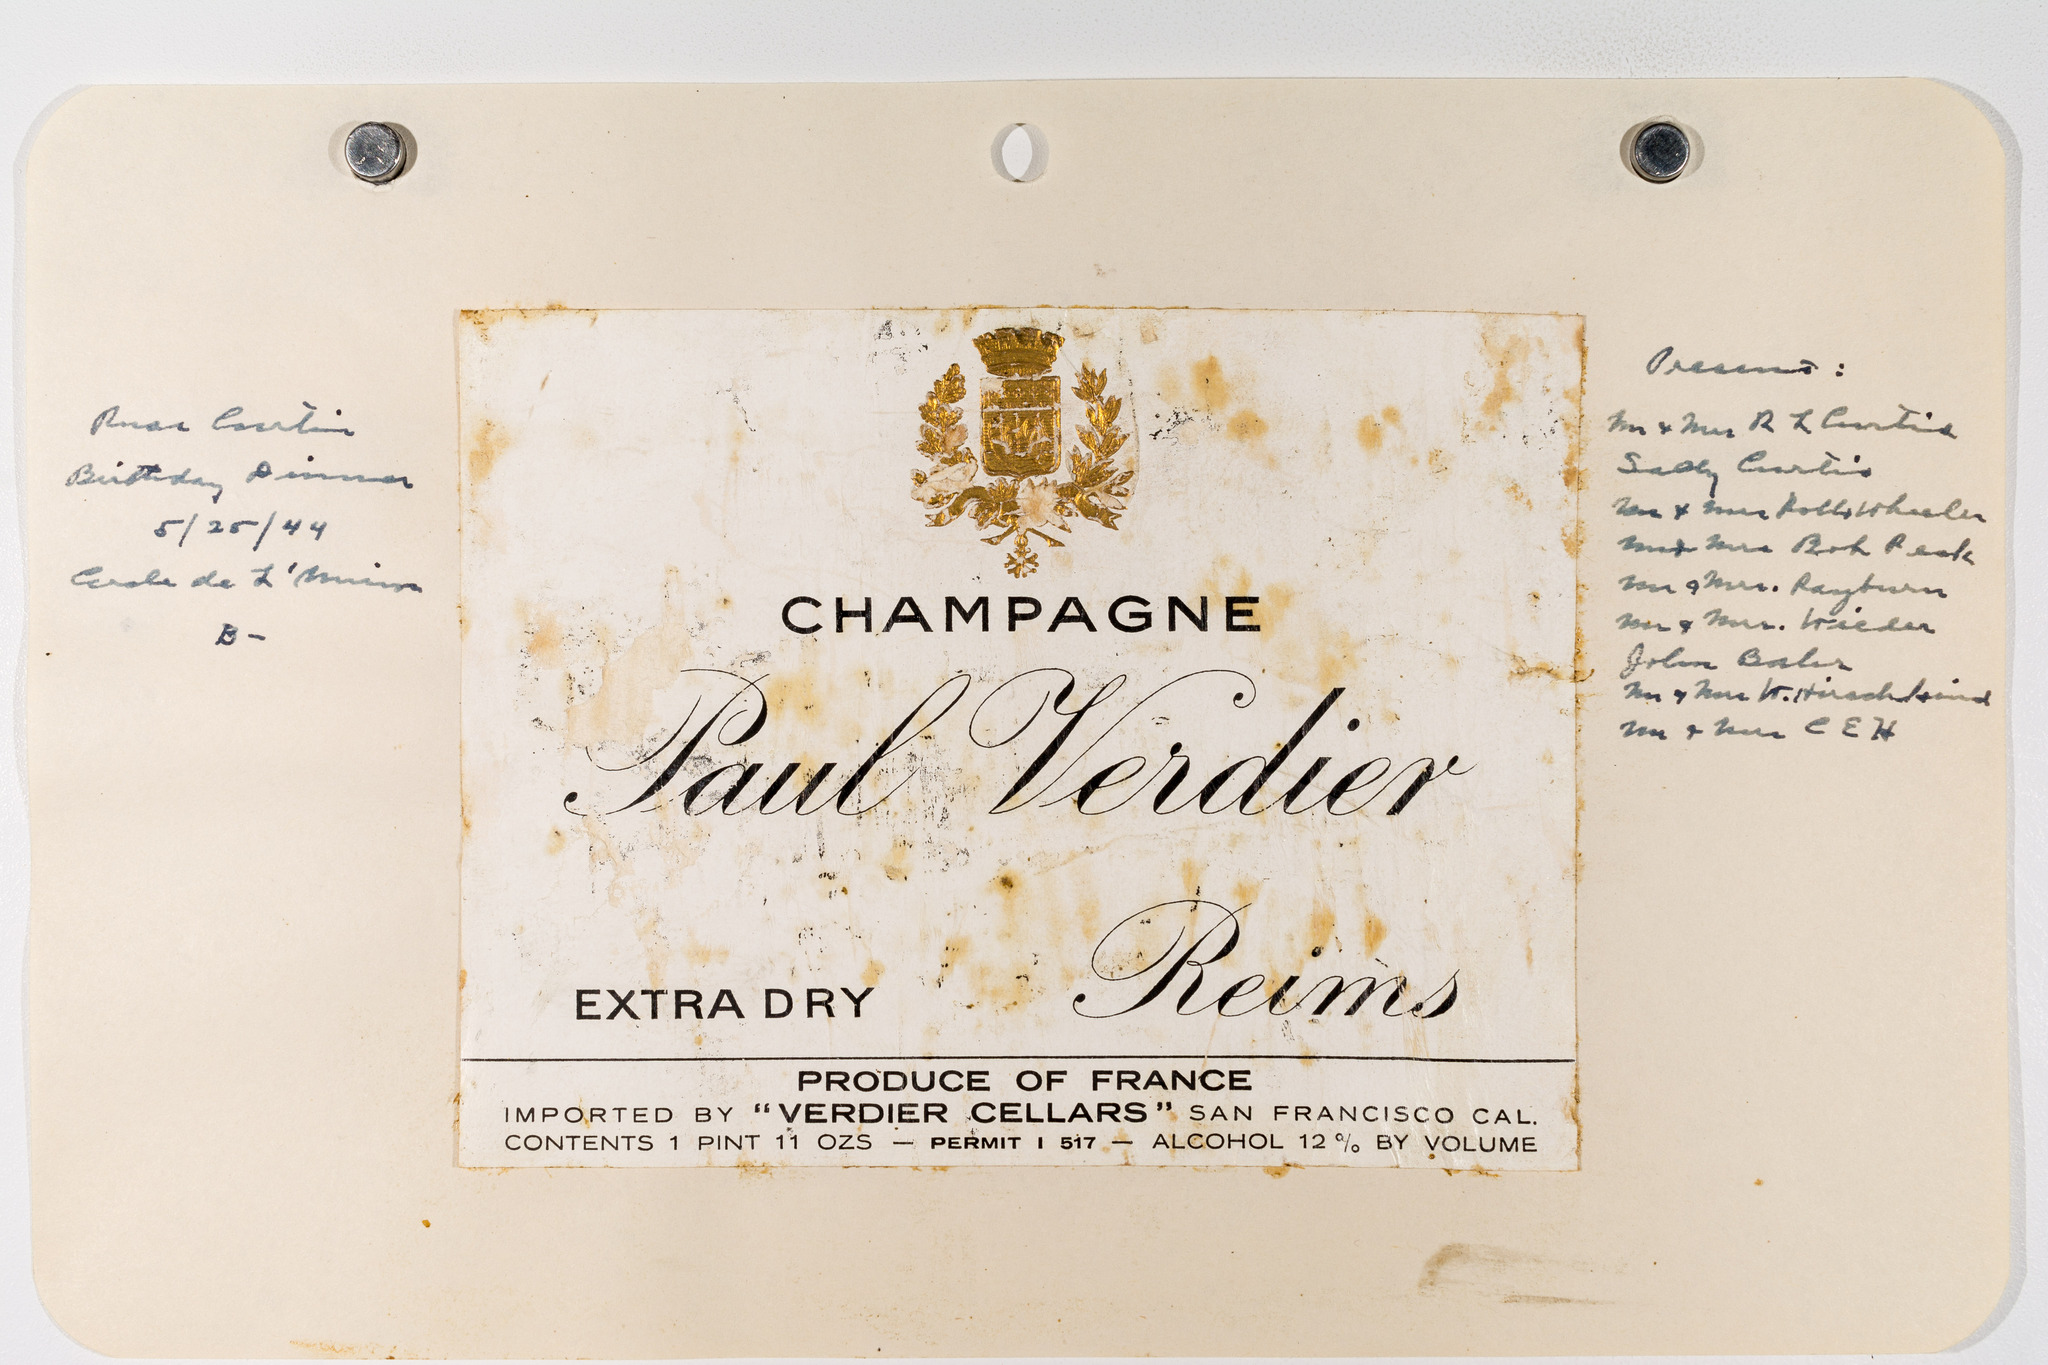 Russ Curtis
Birthday Dinner
5/25/44
Cercle de L'Union
B-
CHAMPAGNE
Paul Verdier
Reims
EXTRA DRY
PRODUCE OF FRANCE
IMPORTED BY "VERDIER CELLARS" SAN FRANCISCO CAL.
CONTENTS 1 PINT 11 OZS — PERMIT I 517 — ALCOHOL 12% BY VOLUME
Present:
Mr & Mrs R L Curtis
Sally Curtis
Mr & Mrs Wheeler
Mr & Mrs Bob Peak
Mr & Mrs. Rayburn
Mr & Mrs. Wieder
John
Mr & Mrs W. Hirschkind
Mr & Mrs C E H